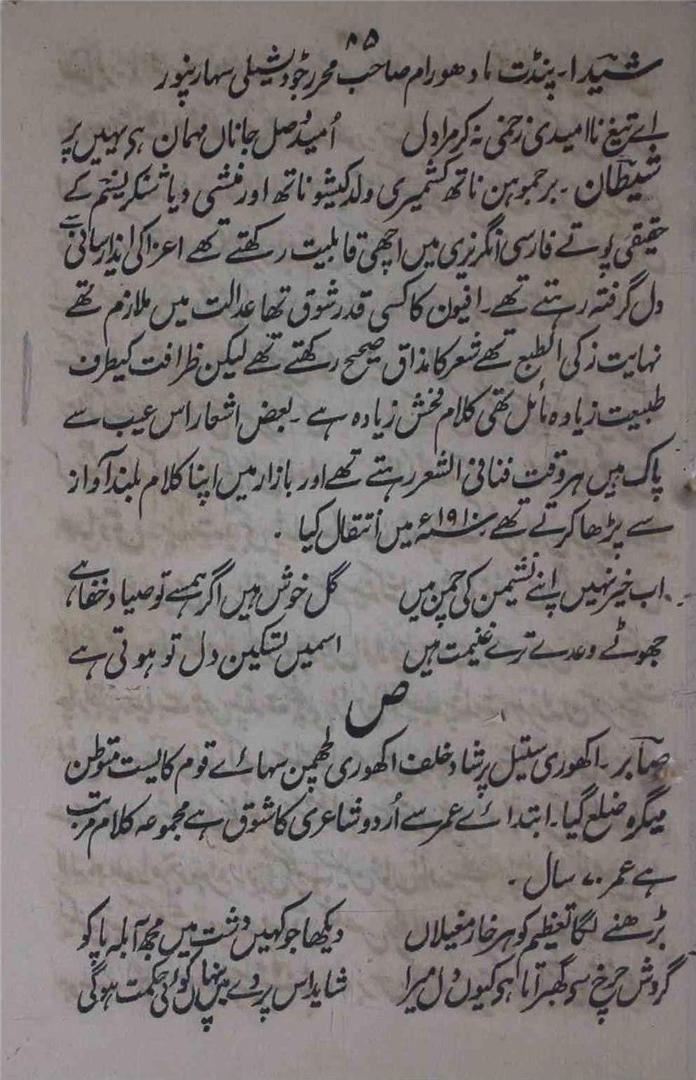 ۸۵
شیدا۔ پنڈت مادھو رام صاحب محرر جوڈیشیلی سہارنپور
اے تیغ ناامیدی زخمی نہ کر مرا دل    اُمید وصل جاناں مہمان ہی یہیں پر
شیطان۔ برجموہن ناتھ کشمیری ولد کیشو ناتھ اور منشی دیا شنکر نسیم کے
حقیقی پوتے فارسی انگریزی میں اچھی قابلیت رکھتے تھے اعزا کی ایذا رسانی سے
دل گرفتہ رہتے تھے۔ افیون کا کسی قدر شوق تھا عدالت میں ملازم تھے
نہایت زکی الطبع تھے شعر کا مذاق صحیح رکھتے تھے لیکن ظرافت کیطرف
طبیعت زیادہ مائل تھی کلام فحش زیادہ ہے۔ بعض اشعار اس عیب سے
پاک ہیں ہر وقت فنا فی الشعر رہتے تھے اور بازار میں اپنا کلام بلند آواز
سے پڑھا کرتے تھے ۱۹۱۰ء میں انتقال کیا۔
اب خیر نہیں اپنے نشیمن کی چمن میں    گل خوش ہیں اگر ہمسے تو صیاد خفا ہے
جھوٹے وعدے ترے غنیمت ہیں    اسمیں تسکین دل تو ہوتی ہے
ص
صابر۔ اکھوری ستیل پرشاد خلف اکھوری لچھمن سہائے قوم کایست متوطن
میگرہ ضلع گیا۔ ابتدائے عمر سے اُردو شاعری کا شوق ہے مجموعہ کلام مرتب
ہے عمر ۷۰ سال۔
بڑھنے لگا تعظیم کو ہر خار مغیلاں    دیکھا جو کہیں دشت میں مجھ آبلہ پا کو
گردش چرخ سے گھبراتا ہی کیوں دل میرا    شاید اس پردے میں پنہاں کوئی حکمت ہوگی